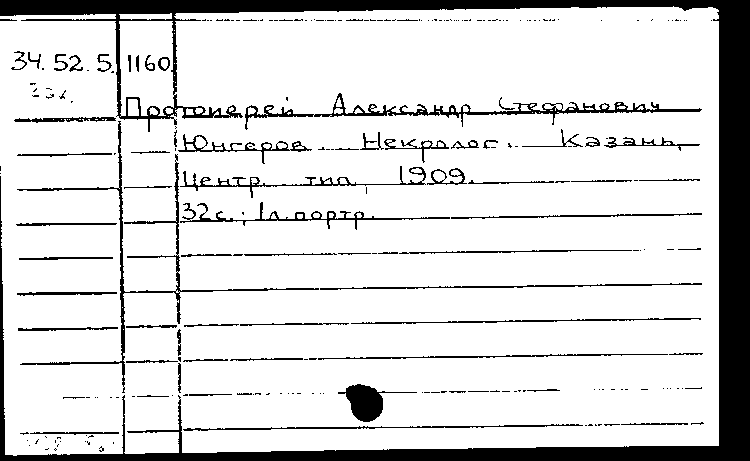 34.52.5. 1160
Протоиерей Александр Стефанович
Юнгеров. Некролог. Казань,
Центр. тип, 1909.
32с.; 1л.портр.